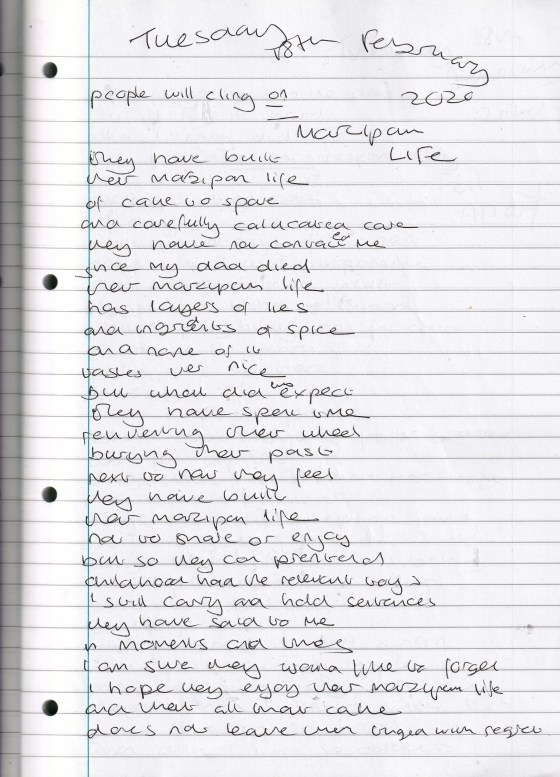 Tuesday 18th February
people will cling on 2020
Marzipan
they have built LIFE
their marzipan life
of cake to spare
and carefully calucated care
they have not contacted me
since my dad died
their marzipan life
has layers of lies
and ingredients of spice
and none of it
tastes very nice
but what did we expect
they have spent time
reinventing their wheel
burying their past
next to how they feel
they have built
their marzipan life
not to share or enjoy
but so they can pretend
childhood had the relevent toys
I still carry and hold sentences
they have said to me
in moments and times
I am sure they would like to forget
I hope they enjoy their marzipan life
and that all that cake
does not leave them tinged with regret